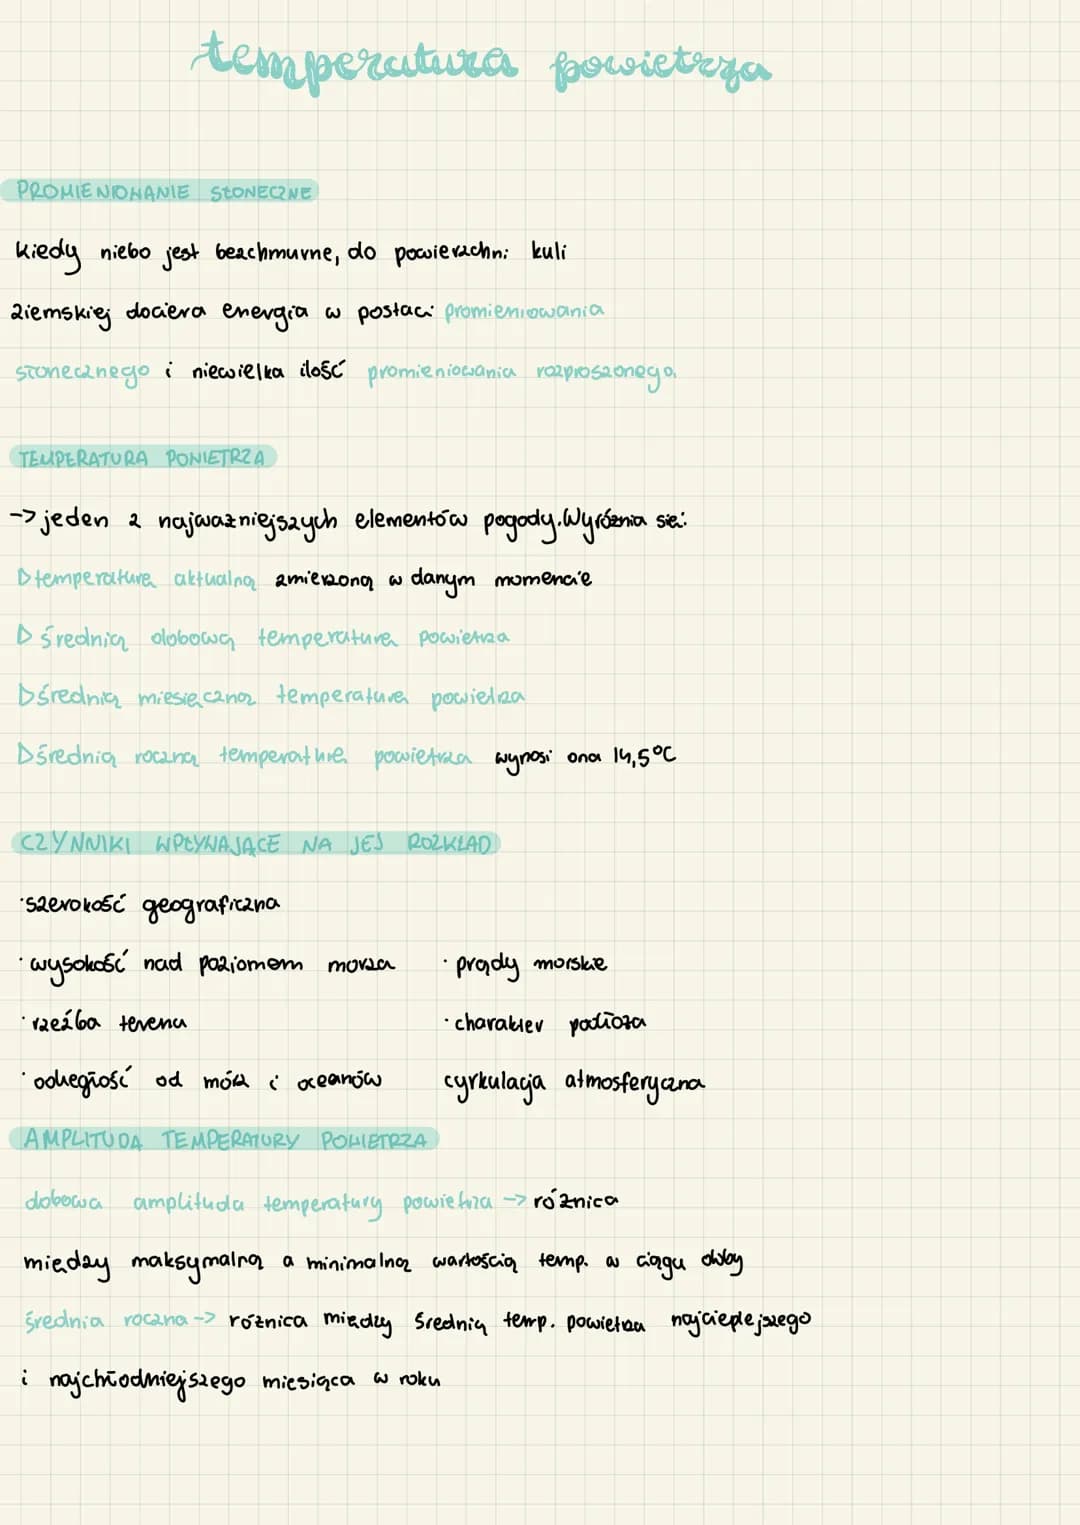 temperatura powietrza
PROMIENIOWANIE SŁONECZNE
kiedy niebo jest bezchmurne, do powierzchni kuli
ziemskiej dociera energia w postaci promieniowania
słonecznego i niewielka ilość promieniowania rozproszonego.
TEMPERATURA POWIETRZA
-> jeden z najważniejszych elementów pogody. Wyróżnia się:
▷ temperaturę aktualną zmierzoną w danym momencie
▷ średnią dobową temperaturę powietrza
▷ średnią miesięczną temperaturę powietrza
▷ średnią roczną temperaturę powietrza wynosi ona 14,5°C
CZYNNIKI WPŁYWAJĄCE NA JEJ ROZKŁAD
· szerokość geograficzna
· wysokość nad poziomem morza · prądy morskie
· rzeźba terenu · charakter podłoża
· odległość od mórz i oceanów cyrkulacja atmosferyczna
AMPLITUDA TEMPERATURY POWIETRZA
dobowa amplituda temperatury powietrza -> różnica
między maksymalną a minimalną wartością temp. w ciągu doby
średnia roczna -> różnica między średnią temp. powietrza najcieplejszego
i najchłodniejszego miesiąca w roku